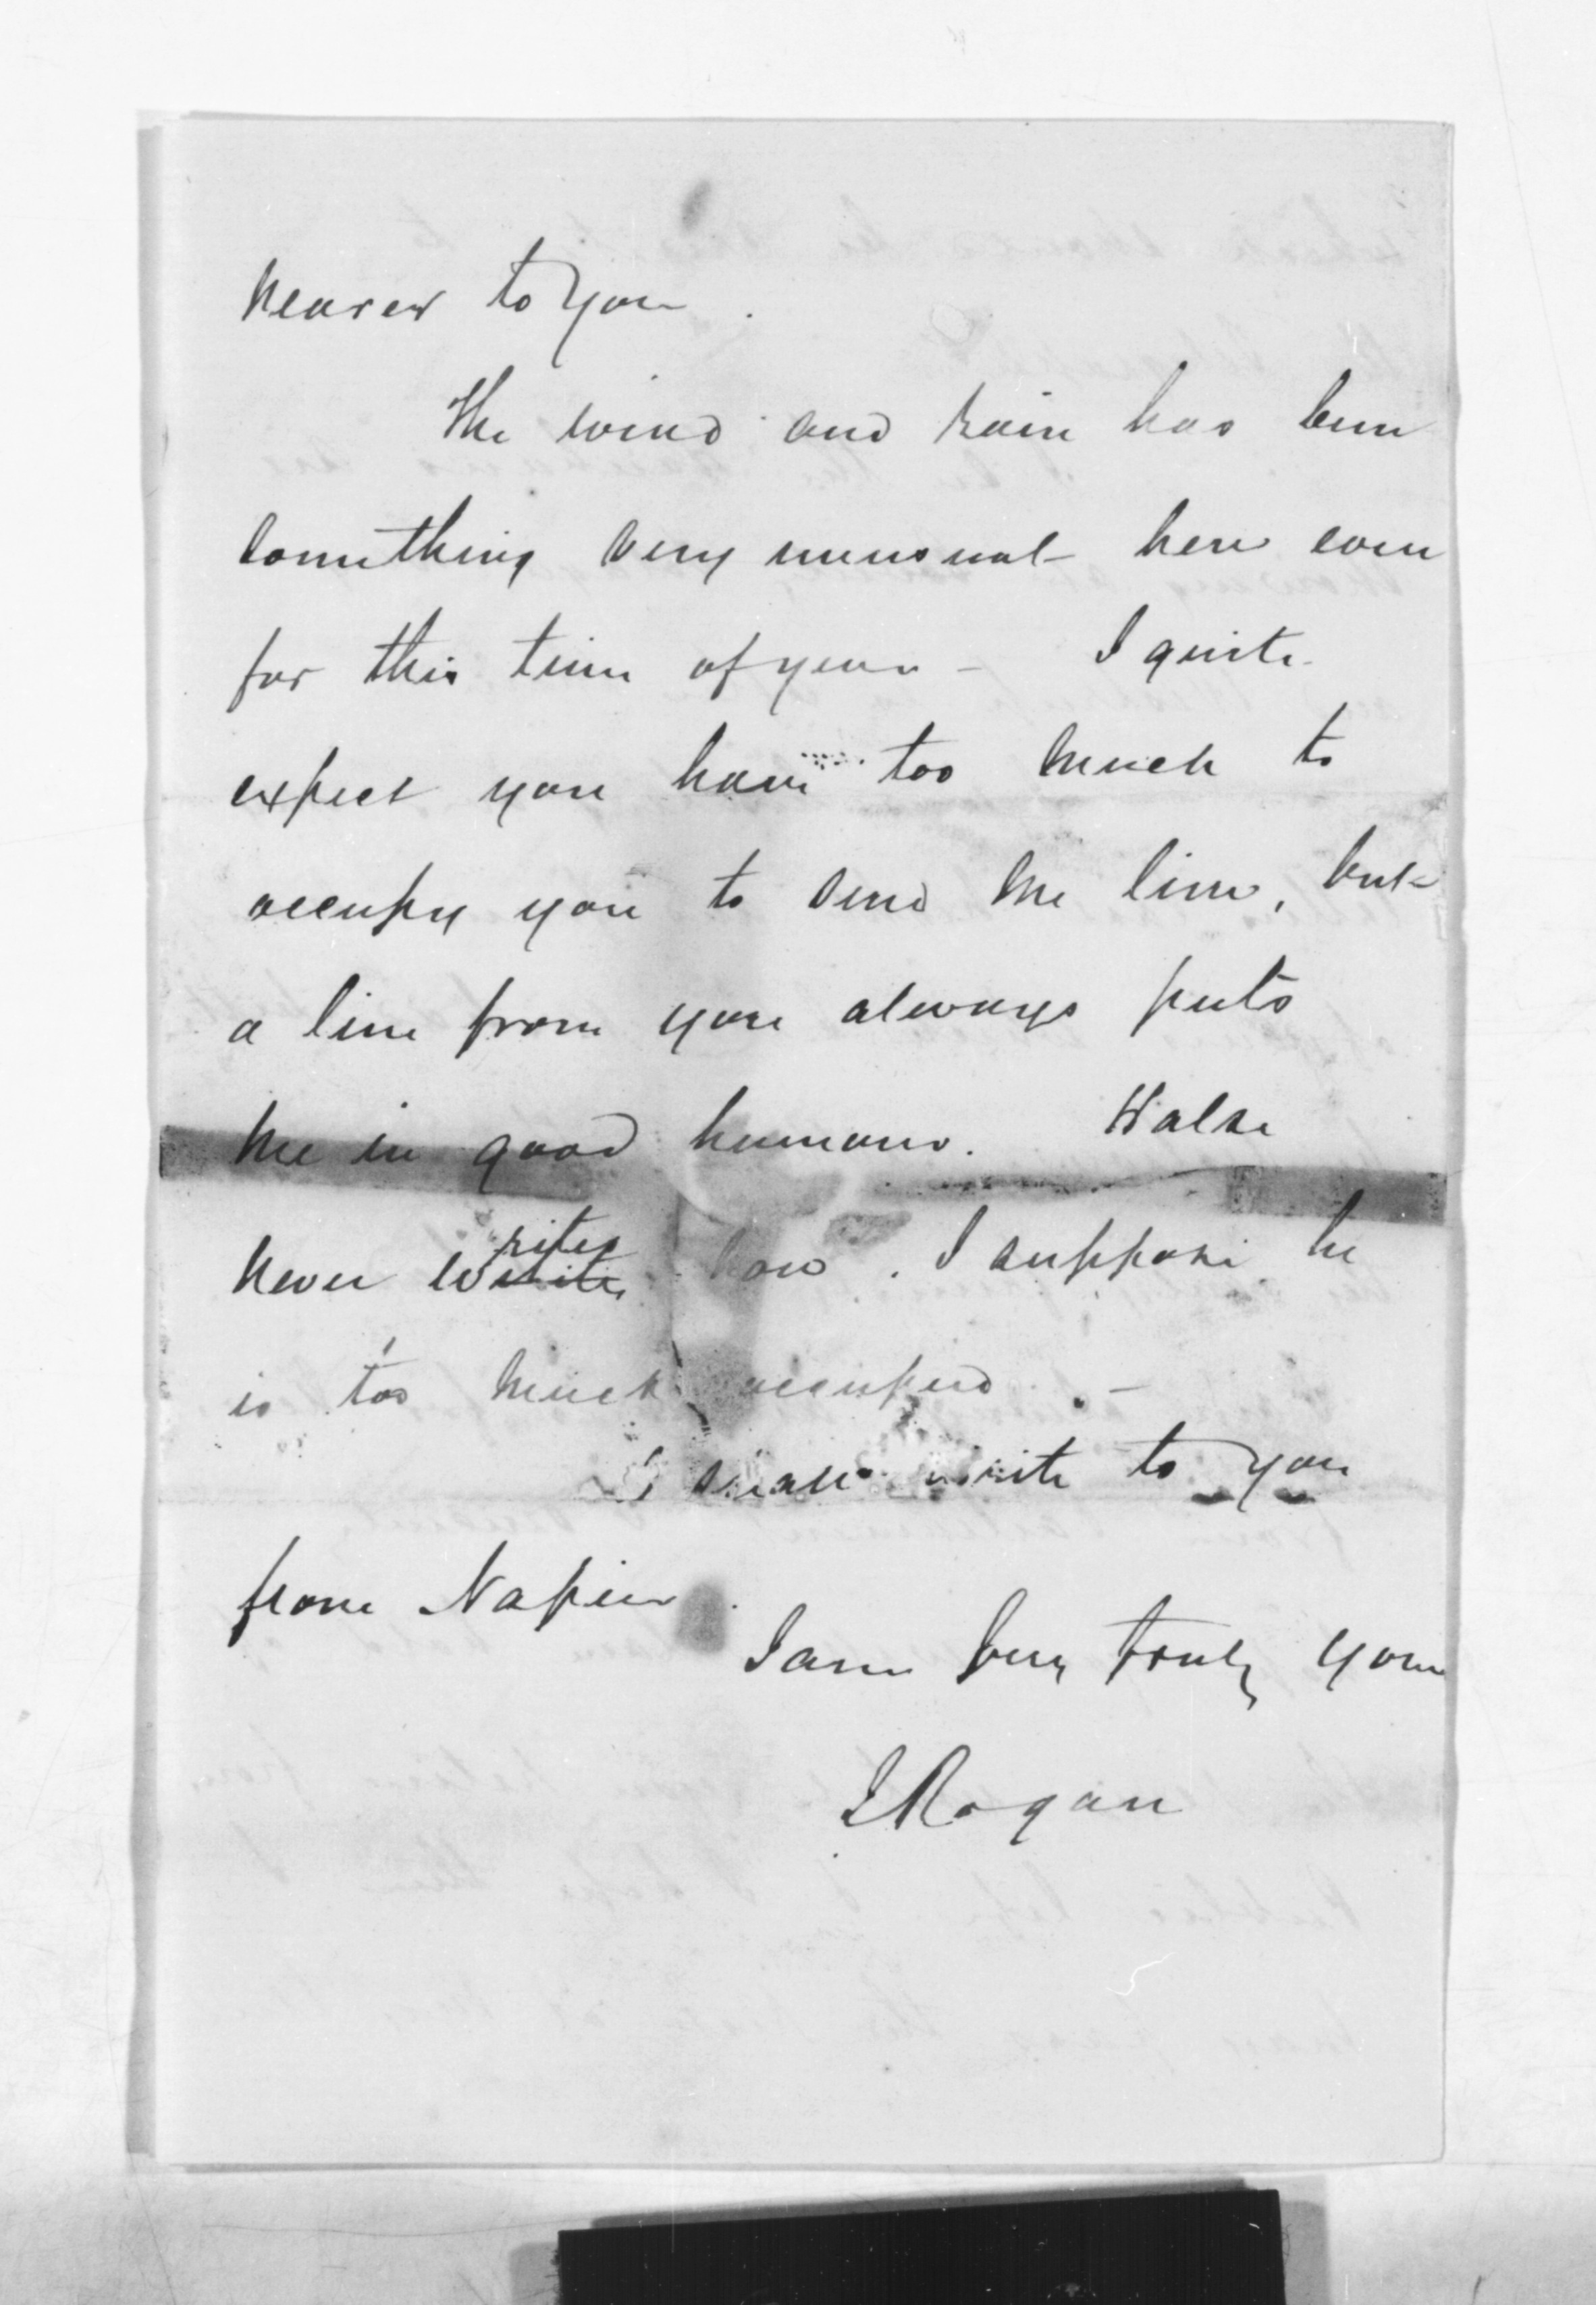 nearer to you.
The wind and rain has been
something very unusual here even
for this time of year - I quite
expect you have too much to
occupy you to send me line, but
a line from you always puts
me in good humour. Halse
never writes now. I suppose he
is too much occupied. -
I shall write to you
from Napier.
I am very truly yours
J Rogan